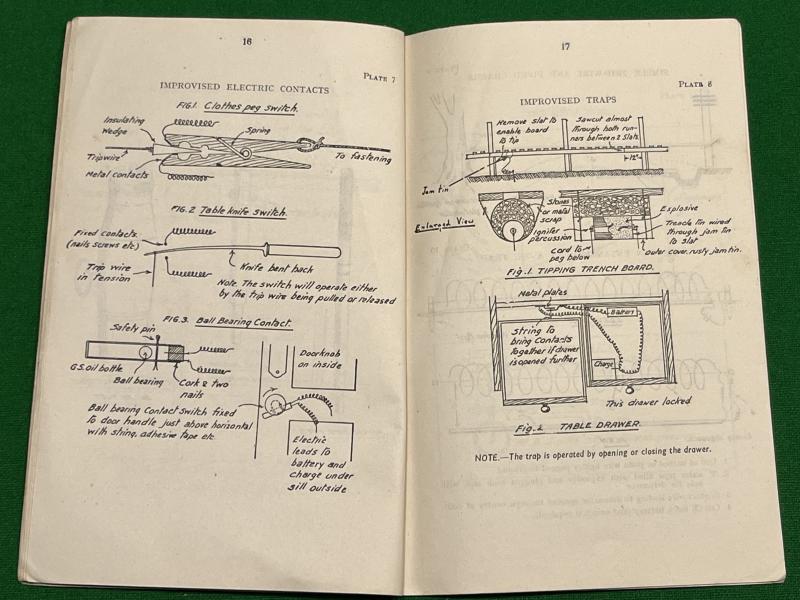 16
PLATE 7
IMPROVISED ELECTRIC CONTACTS
FIG.1. Clothes peg switch.
Insulating
Wedge
Spring
Tripwire
To fastening
Metal contacts
FIG.2 Table knife switch.
Fixed contacts.
(nails screws etc)
Trip wire
in tension
Knife bent back
Note. The switch will operate either
by the trip wire being pulled or released
FIG.3. Ball Bearing Contact.
Safety pin
G.S. oil bottle
Ball bearing
Cork & two
nails
Doorknob
on inside
Ball bearing Contact Switch fixed
to door handle just above horizontal
with string, adhesive tape etc
Electric
leads to
battery and
charge under
sill outside
17
PLATE 8
IMPROVISED TRAPS
Remove slat to
enable board
to tip
Sawcut almost
through both run-
ners between 2 slats.
12"
Jam tin
Enlarged View
Stones
or metal
scrap
Explosive
Igniter
percussion
Trench tin wired
through jam tin
to slat
Cord to
peg below
outer cover, rusty jam tin.
Fig.1. TIPPING TRENCH BOARD.
Metal plates
Battery
String to
bring Contacts
together if drawer
is opened further
Charge
This drawer locked
Fig.2 TABLE DRAWER.
NOTE.—The trap is operated by opening or closing the drawer.